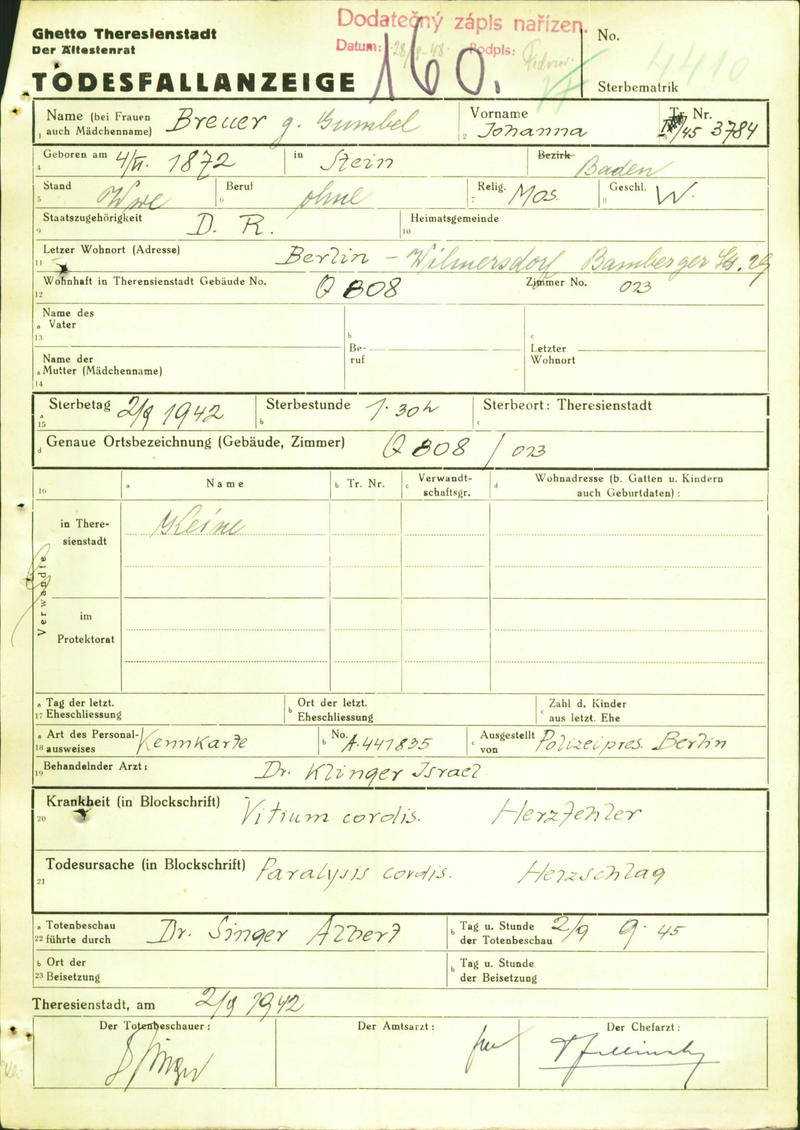 Ghetto Theresienstadt
Der Ältestenrat
TODESFALLANZEIGE
Dodatečný zápis nařízen.
Datum: Podpis:
160.
No. 4410
Sterbematrik
1 Name (bei Frauen auch Mädchenname) Breuer g. Gumbel
2 Vorname Johanna
Tr. Nr. /45 3784
4 Geboren am 4/VI. 1872 in Stein Bezirk Baden
5 Stand Wwe 6 Beruf ohne 7 Relig. Mos. 8 Geschl. W.
9 Staatszugehörigkeit D. R. 10 Heimatsgemeinde
11 Letzer Wohnort (Adresse) Berlin - Wilmersdorf Bamberger Str. 29
12 Wohnhaft in Theresienstadt Gebäude No. Q 808 Zimmer No. 023
13 a Name des Vater
14 a Name der Mutter (Mädchenname)
b Beruf
c Letzter Wohnort
15 a Sterbetag 2/9 1942 b Sterbestunde 1.30h c Sterbeort: Theresienstadt
d Genaue Ortsbezeichnung (Gebäude, Zimmer) Q 808 / 023
16 a Name b Tr. Nr. c Verwandtschaftsgr. d Wohnadresse (b. Gatten u. Kindern auch Geburtdaten) :
Verwandte
in Theresienstadt Keine
im Protektorat
17 a Tag der letzt. Eheschliessung b Ort der letzt. Eheschliessung c Zahl d. Kinder aus letzt. Ehe
18 a Art des Personalausweises Kennkarte b No. A.441835 c Ausgestellt von Polizeipres. Berlin
19 Behandelnder Arzt: Dr. Klinger Israel
20 Krankheit (in Blockschrift) Vitium cordis. Herzfehler
21 Todesursache (in Blockschrift) Paralysis cordis. Herzschlag
22 a Totenbeschau führte durch Dr. Singer Albert b Tag u. Stunde der Totenbeschau 2/9 9.45
23 b Ort der Beisetzung b Tag u. Stunde der Beisetzung
Theresienstadt, am 2/9 1942
Der Totenbeschauer: Der Amtsarzt: Der Chefarzt: